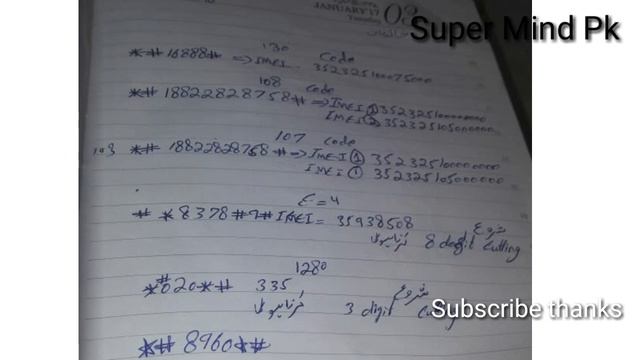 JANUARY 17
Tuesday
03
Super Mind Pk
130 Code
*# 16888# ⇒ IMEI - 352325100075000
108 Code
*# 18822828758# ⇒ IMEI ① 352325100000000
IMEI ② 352325105000000
107 Code
*# 18822828758# ⇒ IMEI ① 352325100000000
IMEI ① 352325105000000
E = 4
# *8378#9# IMEI = 35938508
شروع
8 digit Cutting
1280
*#020*# 335
شروع
3 digit
Subscribe thanks
*# 8960*#